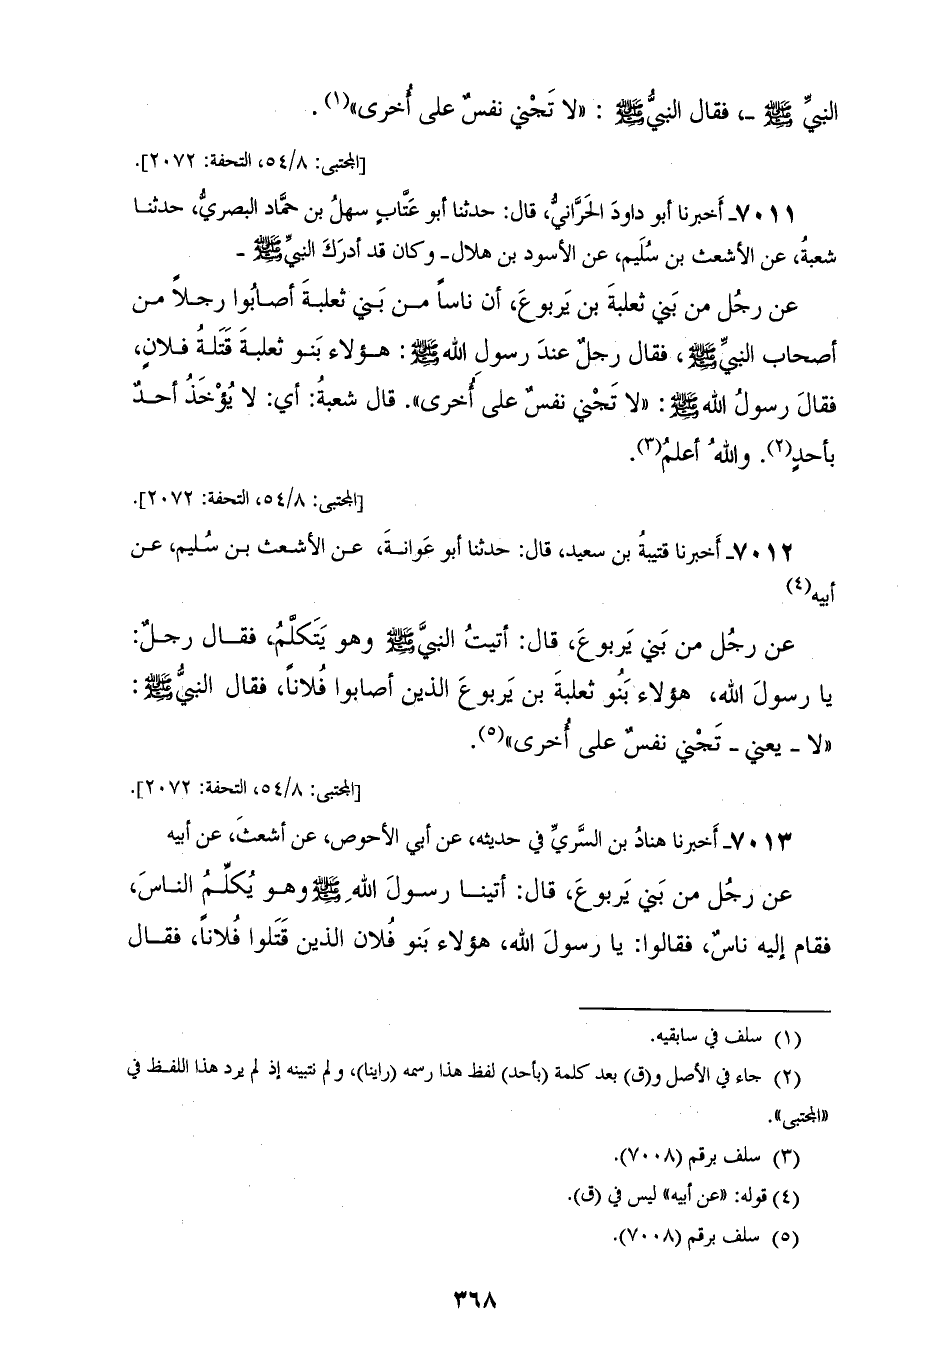 النبيِّ ﷺ ـ، فقال النبيُّ ﷺ : «لا تَجْني نفسٌ على أُخرى»(١).
[المجتبى: ٥٤/٨، التحفة: ٢٠٧٢].
٧٠١١ـ أَخبرنا أبو داودَ الحَرَّانيُّ، قال: حدثنا أبو عَتَّابٍ سهلُ بن حمَّاد البصريُّ، حدثنـا
شعبةُ، عن الأشعث بن سُلَيم، عن الأسود بن هلال ـ وكان قد أدرَكَ النبيَّ ﷺ ـ
عن رجُل من بَني ثعلبةَ بن يَربوعَ، أن ناساً مـن بَـني ثعلبـةَ أصـابُوا رجـلاً مـن
أصحاب النبيِّ ﷺ، فقال رجلٌ عندَ رسولِ الله ﷺ : هـؤلاء بَنـو ثعلبـةَ قَتَلـةُ فـلانٍ،
فقالَ رسولُ الله ﷺ : «لا تَجْني نفسٌ على أُخرى». قال شعبةُ: أي: لا يُؤْخَذُ أحـدٌ
بأحدٍ(٢). واللهُ أعلمُ(٣).
[المجتبى: ٥٤/٨، التحفة: ٢٠٧٢].
٧٠١٢ـ أَخبرنا قتيبةُ بن سعيد، قال: حدثنا أبو عَوانـةَ، عـن الأشـعث بـن سُـليم، عـن
أبيه(٤)
عن رجُل من بَني يَربوعَ، قال: أتيتُ النبيَّ ﷺ وهو يَتَكلَّمُ، فقـال رجـلٌ:
يا رسولَ الله، هؤلاء بَنُو ثعلبةَ بن يَربوعَ الذين أصابوا فُلاناً، فقال النبيُّ ﷺ :
«لا ـ يعني ـ تَجْني نفسٌ على أُخرى»(٥).
[المجتبى: ٥٤/٨، التحفة: ٢٠٧٢].
٧٠١٣ـ أَخبرنا هنادُ بن السَّريِّ في حديثه، عن أبي الأحوص، عن أشعثَ، عن أبيه
عن رجُل من بَني يَربوعَ، قال: أتينـا رسولَ اللهِ ﷺ وهـو يُكلِّـمُ النـاسَ،
فقام إليه ناسٌ، فقالوا: يا رسولَ الله، هؤلاء بَنو فُلان الذين قَتَلوا فُلاناً، فقـال
(١) سلف في سابقيه.
(٢) جاء في الأصل و(ق) بعد كلمة (بأحد) لفظ هذا رسمه (راينا)، ولم نتبينه إذ لم يرد هذا اللفـظ في
«المجتبى».
(٣) سلف برقم (٧٠٠٨).
(٤) قوله: «عن أبيه» ليس في (ق).
(٥) سلف برقم (٧٠٠٨).
٣٦٨